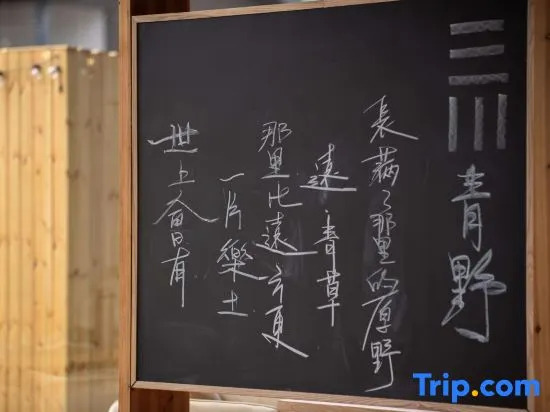 世上曾有
一片樂土
那里比遠方更
遠·青草
長满了那里的原野
青野
Trip.com